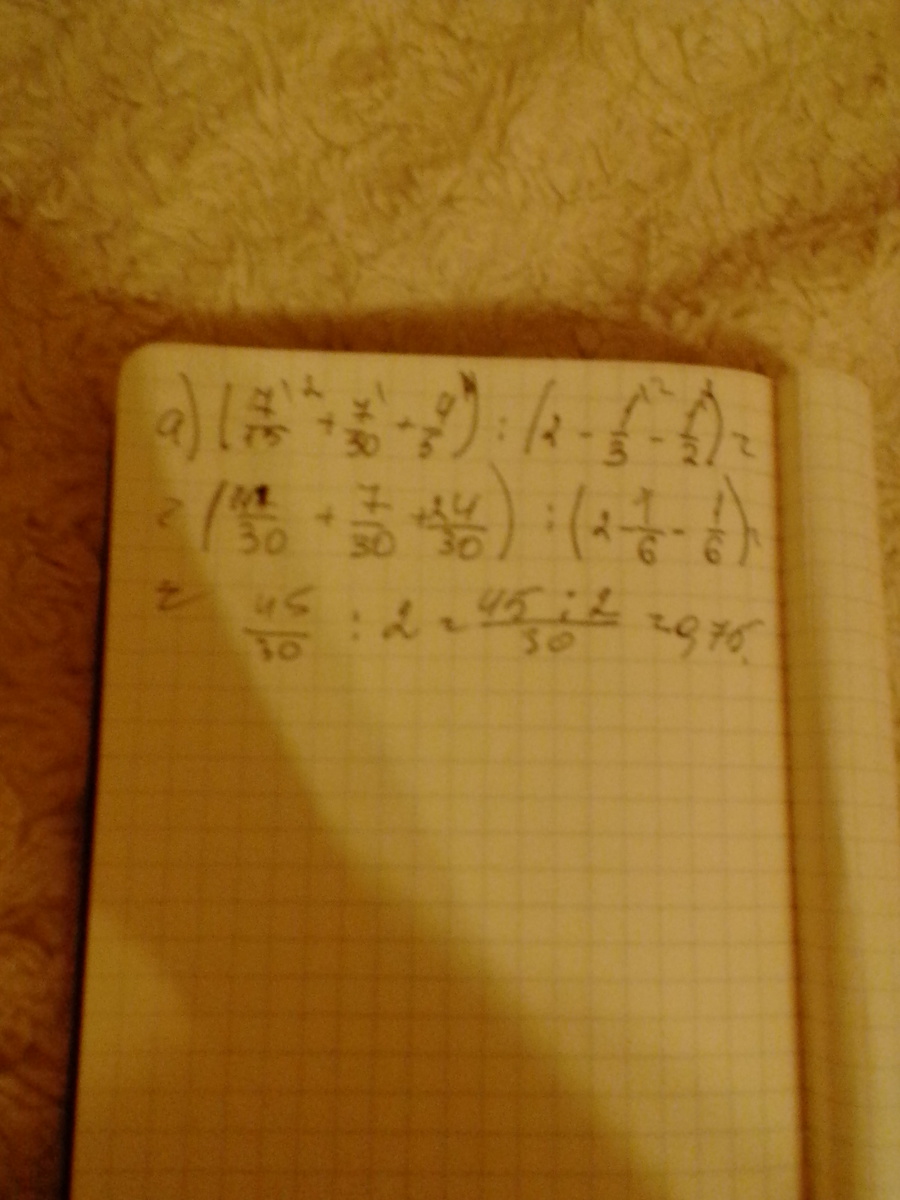 а) (7/15 + 7/30 + 4/5) : (2 - 1/3 - 1/2) =
= (14/30 + 7/30 + 24/30) : (2 1/6 - 1/6) =
= 45/30 : 2 = 45 : 2/30 = 0,75.